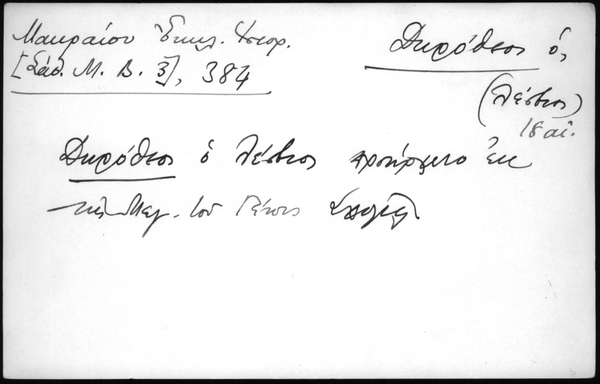 Μακραίου Ἐκκλ. Ἱστορ.
[Σάθ. Μ. Β. 3], 384
Δωρόθεος ὁ,
(Λέσβιος)
18 αἰ.
Δωρόθεος ὁ Λέσβιος προήρχετο ἐκ
τῆς Μεγ. τοῦ Γένους Σχολῆς.